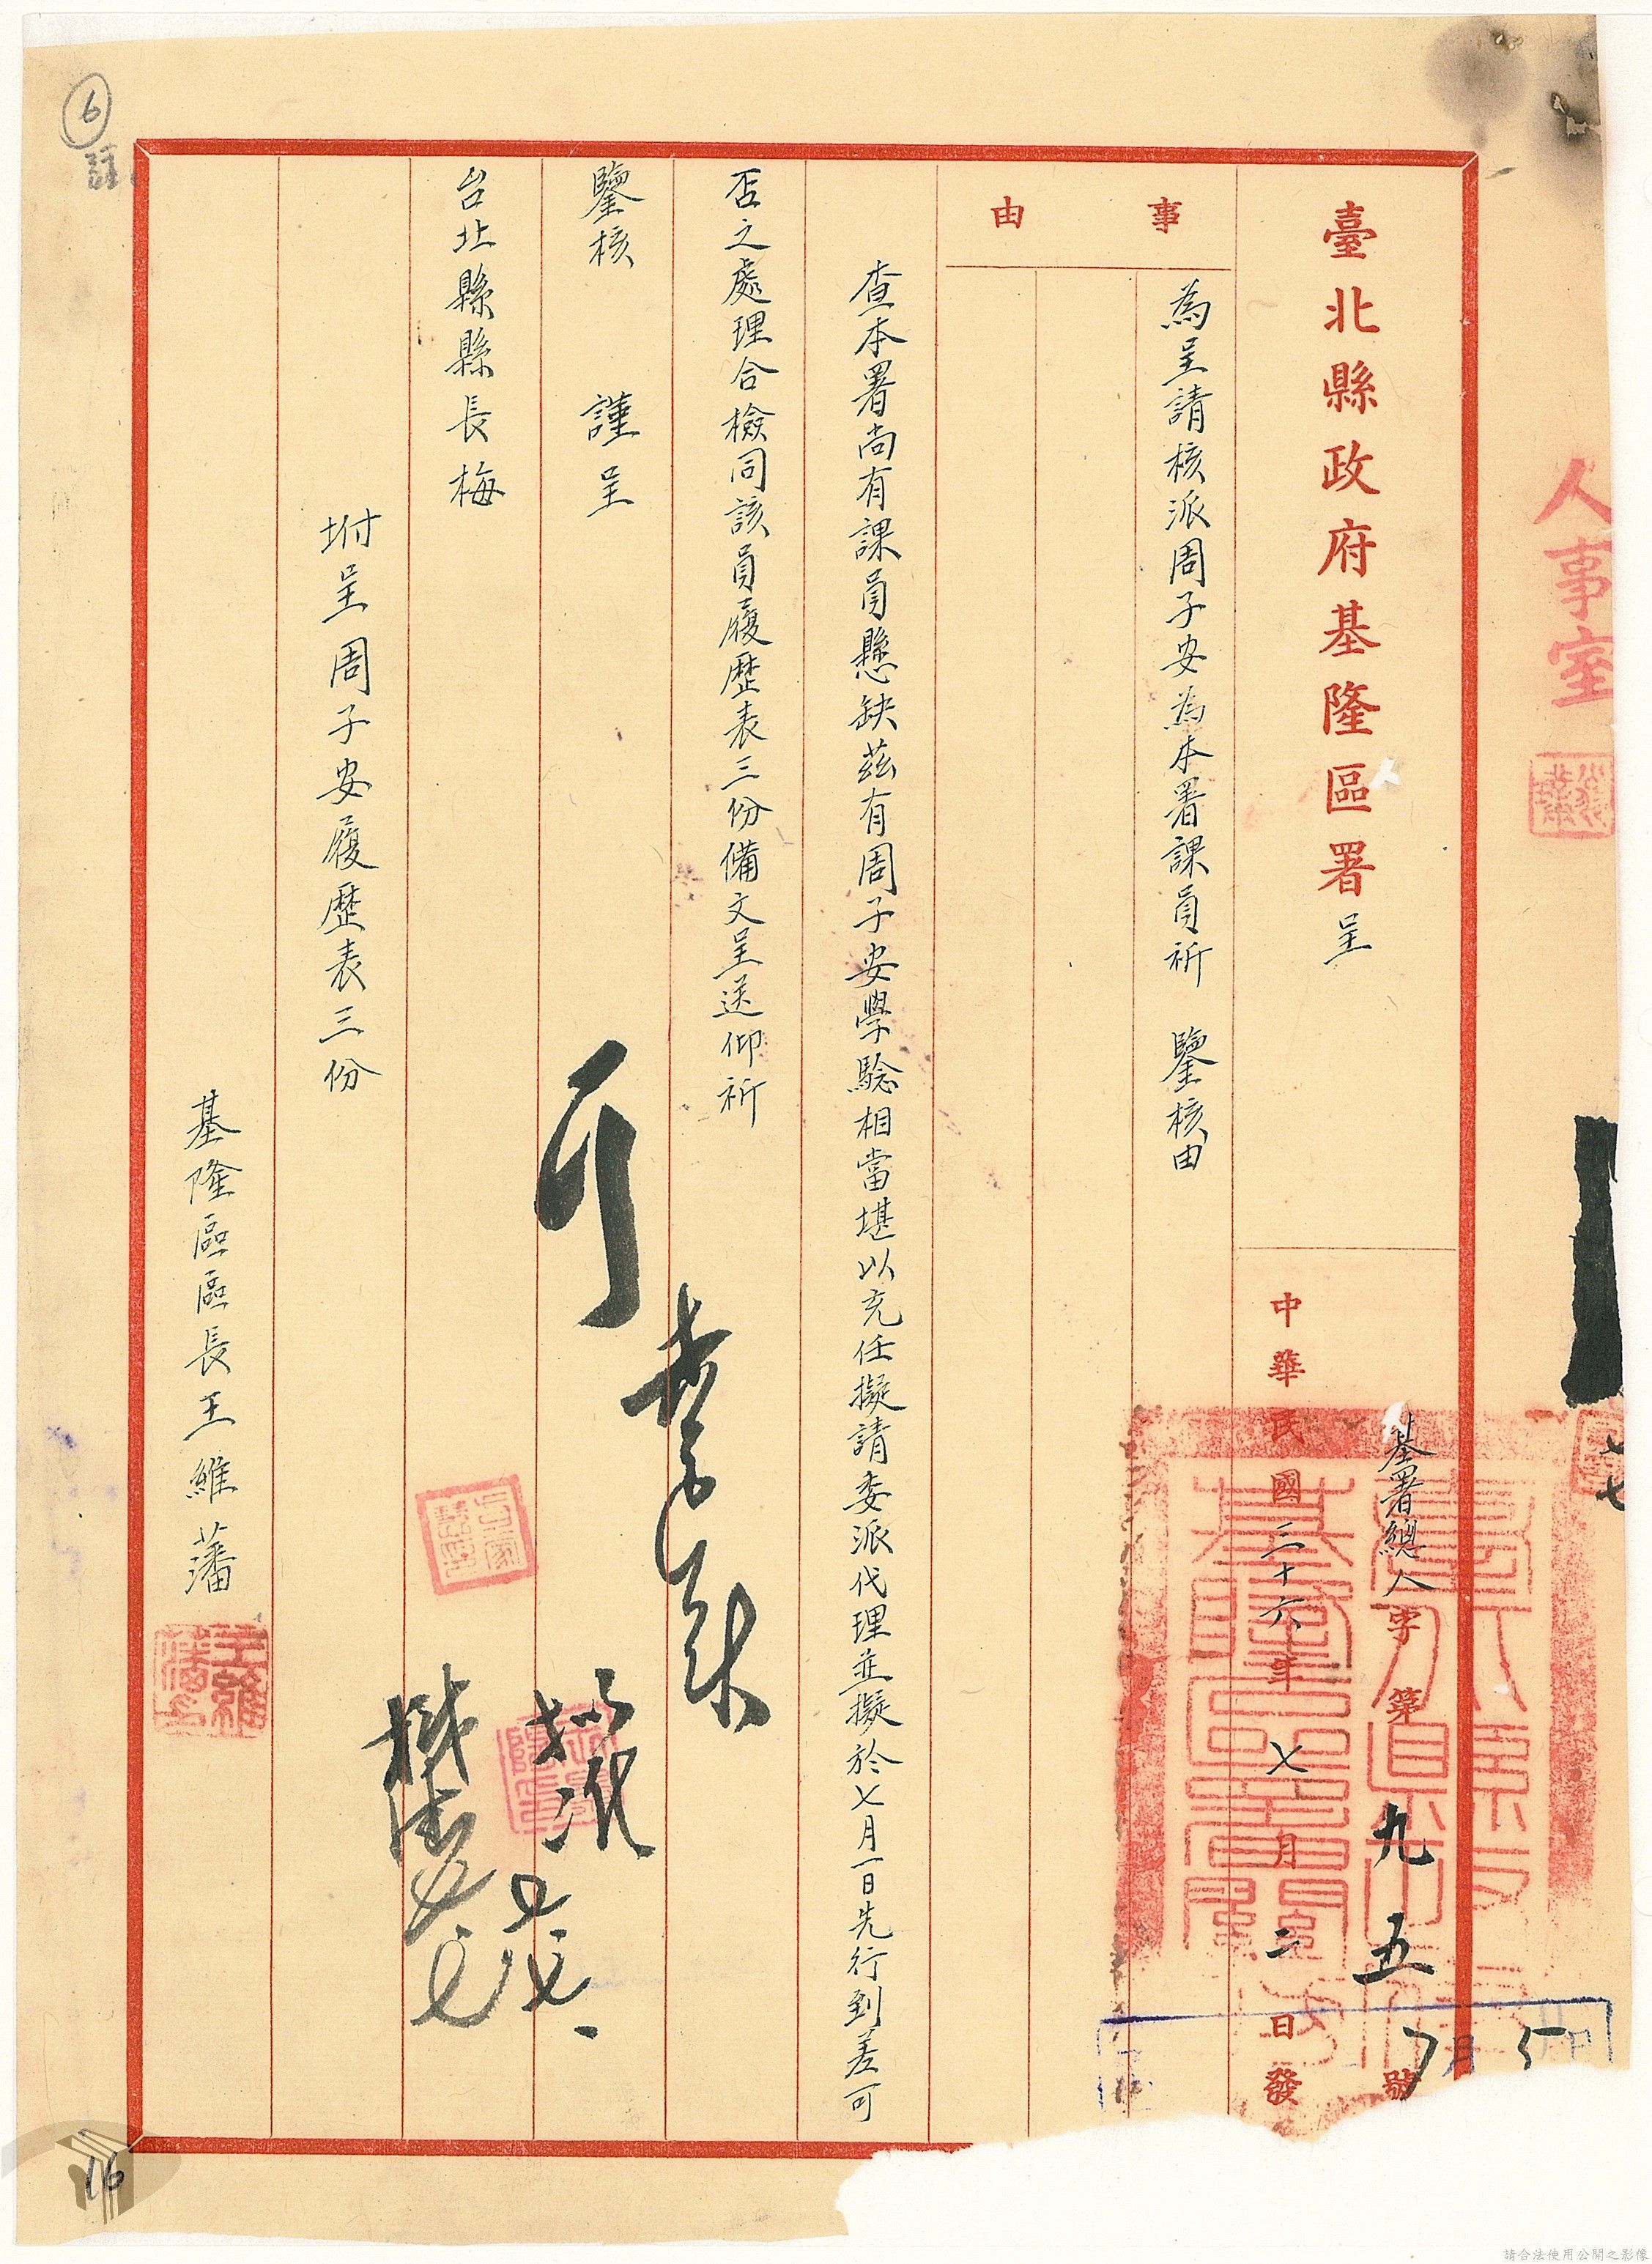 人事室
臺北縣政府基隆區署呈
基署總人字第九五號
中華民國三十六年七月二日發
7月5日
事由
為呈請核派周子安為本署課員祈 鑒核由
查本署尚有課員懸缺茲有周子安學驗相當堪以充任擬請委派代理並擬於七月一日先行到差可
否之處理合檢同該員履歷表三份備文呈送仰祈
鑒核 謹呈
台北縣縣長梅
坿呈周子安履歷表三份
基隆區區長王維藩
可
擬派
6
註
16
請合法使用公開之影像